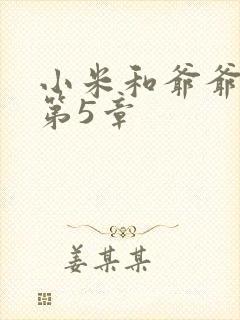 小米和爷爷
第5章
姜某某